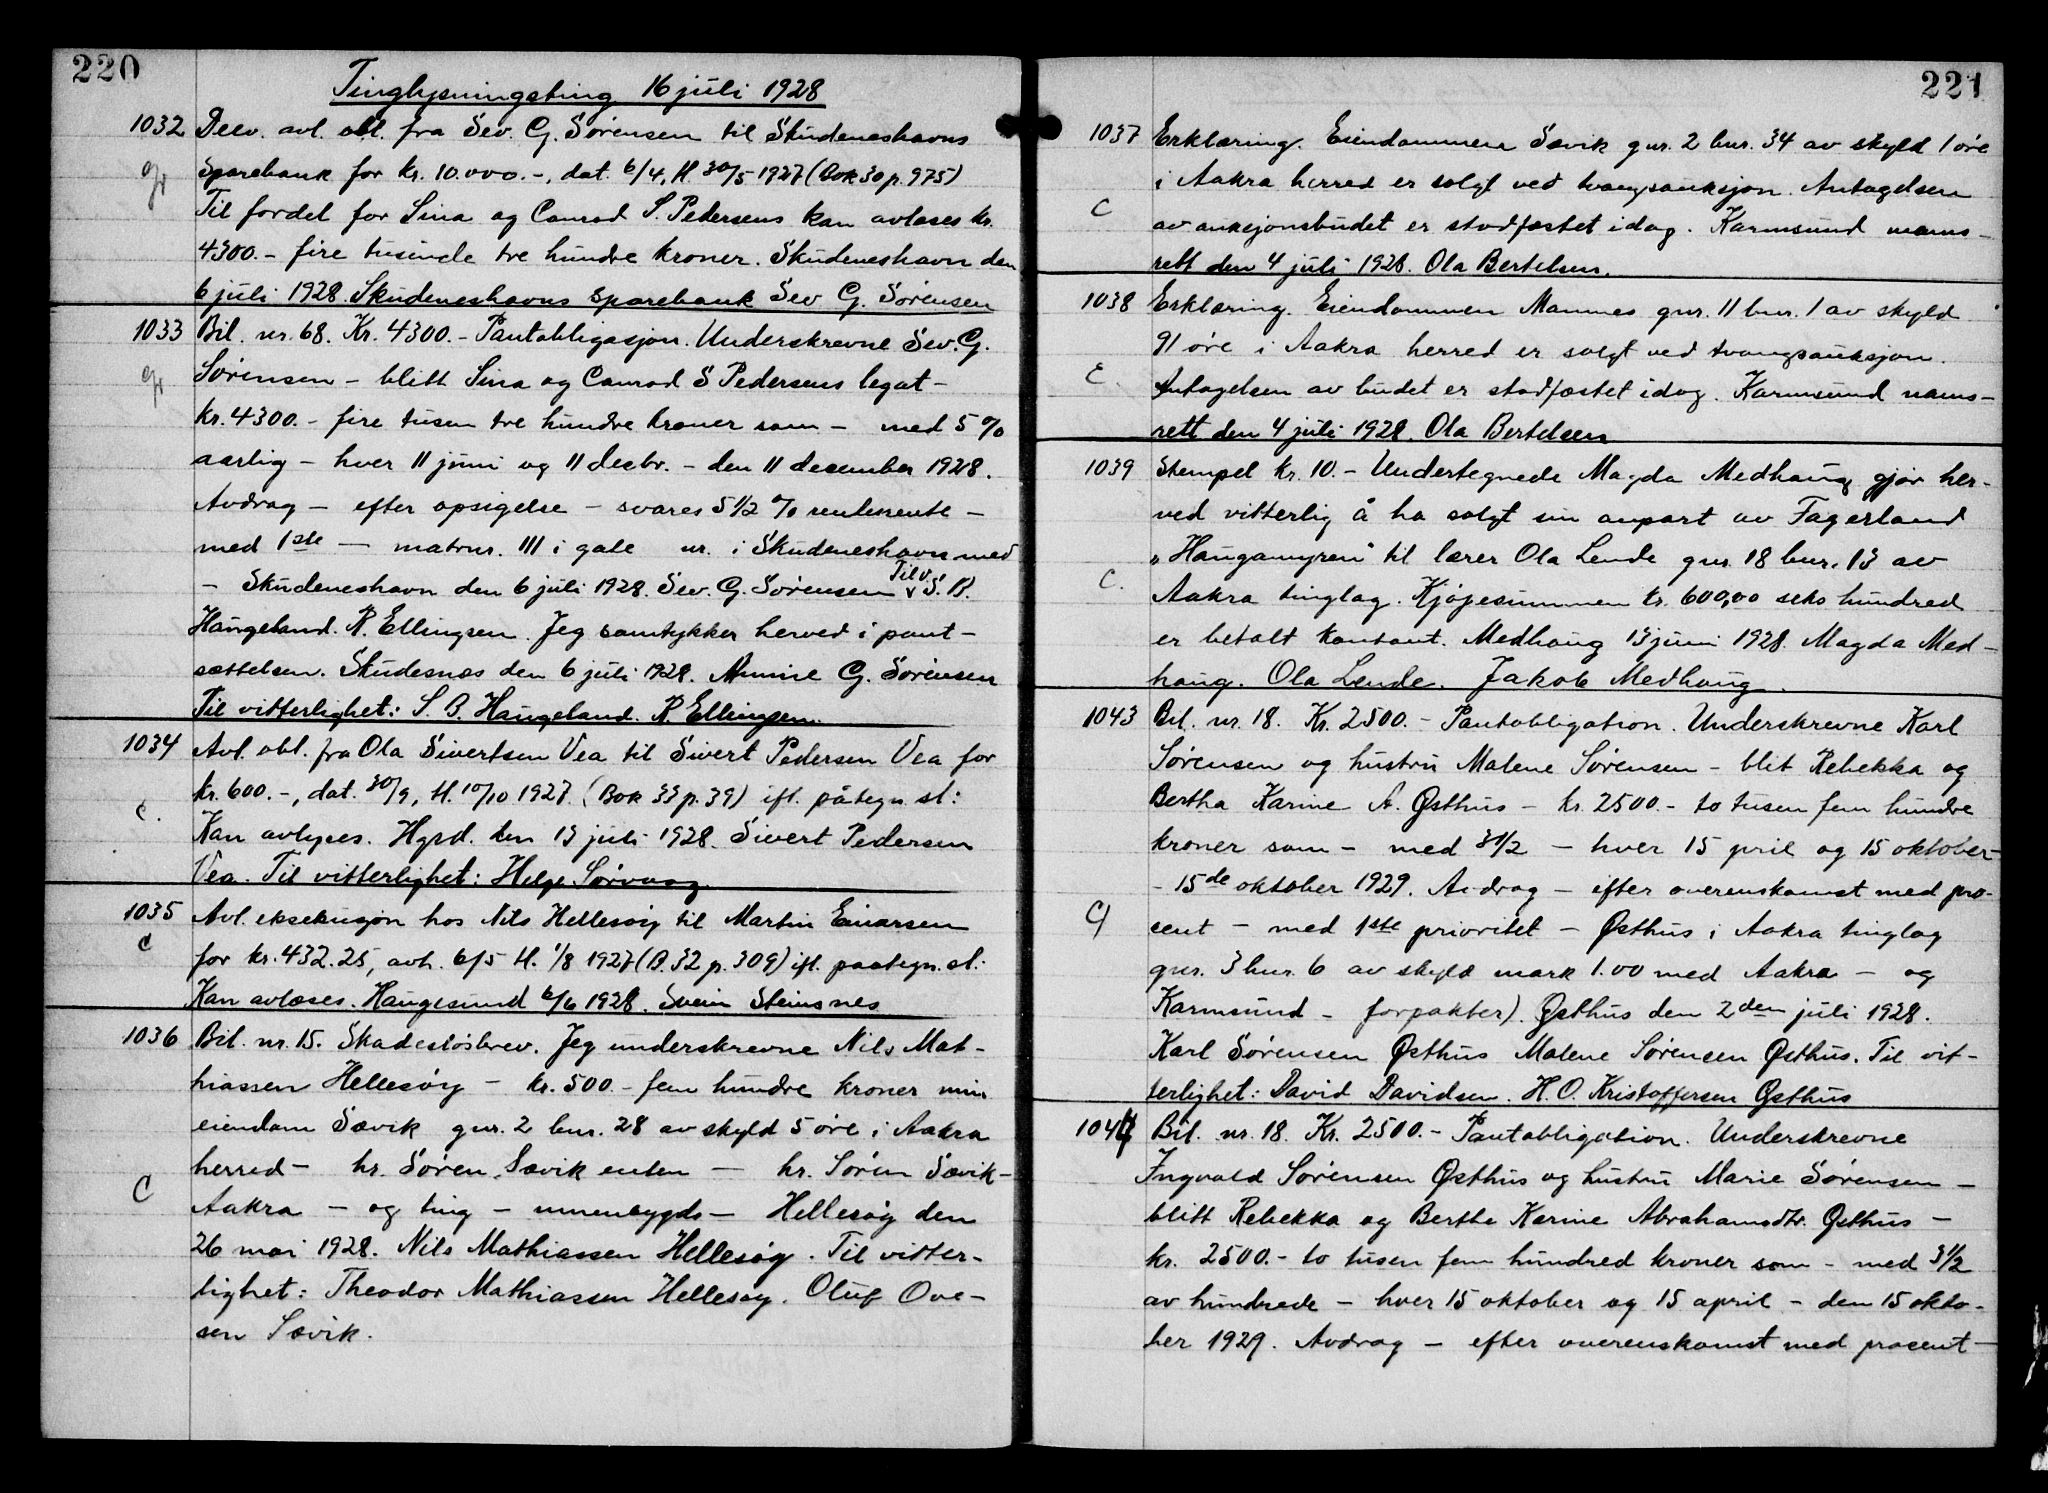 220
Tinglysningsting 16 juli 1928
1032 Delv. avl. obl. fra Sev. G. Sørensen til Skudeneshavns
Sparebank for kr. 10.000.-, dat. 6/4, tl. 30/5 1927 (Bok 30 p. 975)
Til fordel for Sina og Conrad S. Pedersens kan avløses kr.
4300.- fire tusinde tre hundre kroner. Skudeneshavn den
6 juli 1928. Skudeneshavns Sparebank Sev. G. Sørensen
1033 Bil. nr. 68. Kr. 4300.- Pantobligasjon. Underskrevne Sev. G.
Sørensen - blitt Sina og Conrad S Pedersens legat -
kr. 4300.- fire tusen tre hundre kroner som - med 5 %
aarlig - hver 11 juni og 11 decbr. - den 11 december 1928.
Avdrag - efter opsigelse - svares 5 1/2 %
med 1ste - matrnr. 111 i gate nr. i Skudeneshavn med
- Skudeneshavn den 6 juli 1928. Sev. G. Sørensen Til v. S. B.
Haugeland. R. Ellingsen. Jeg samtykker herved i pant-
sættelsen. Skudesnes den 6 juli 1928. G. Sørensen
Til vitterlighet: S. B. Haugeland. R Ellingsen.
1034 Avl. obl. fra Ola Sivertsen Vea til Sivert Pedersen Vea for
kr. 600.-, dat. 30/9, tl. 10/10 1927. (Bok 33 p. 39) ifl. påtegn. sl:
Kan avlyses. Hgsd. den 13 juli 1928. Sivert Pedersen
Vea. Til vitterlighet: Helge Sørvaag.
1035 Avl. eksekusjon hos Nils Hellesøy til Martin Einarsen
C
for kr. 432.25, avh. 6/5 tl. 1/8 1927 (B. 32 p. 309) ifl. paategn. sl:
Kan avløses. Haugesund 6/6 1928. Svein Steinsnes
1036 Bil. nr. 15. Skadesløsbrev. Jeg underskrevne Nils Mat-
hiassen Hellesøy - kr. 500.- fem hundre kroner min
eiendom Sævik gnr. 2 bnr. 28 av skyld 5 øre i Aakra
herred - hr. Søren Sævik enten - hr. Søren Sævik -
C
Aakra - og ting - - Hellesøy den
26 mai 1928. Nils Mathiassen Hellesøy. Til vitter-
lighet: Theodor Mathiassen Hellesøy. Oluf Ove-
sen Sævik.
221
1037 Erklæring. Eiendommen Sævik gnr. 2 bnr. 34 av skyld 1 øre
i Aakra herred er solgt ved tvangsauksjon. Antagelsen
C
av auksjonsbudet er stadfæstet idag. Karmsund nams-
rett den 4 juli 1928. Ola Bertelsen.
1038 Erklæring. Eiendommen Mannes gnr. 11 bnr. 1 av skyld
91 øre i Aakra herred er solgt ved tvangsauksjon.
C.
Antagelsen av budet er stadfæstet idag. Karmsund nams-
rett den 4 juli 1928. Ola Bertelsen
1039 Stempel kr. 10.- Undertegnede Magda Medhaug gjør her-
ved vitterlig å ha solgt sin anpart av Fagerland
"Haugamyren" til lærer Ola Lende gnr. 18 bnr. 13 av
C.
Aakra tinglag. Kjøpesummen kr. 600,00 seks hundred
er betalt kontant. Medhaug 13 juni 1928. Magda Med-
haug. Ola Lende. Jakob Medhaug.
1043 Bil. nr. 18. Kr. 2500.- Pantobligation. Underskrevne Karl
Sørensen og hustru Malene Sørensen - blit Rebekka og
Bertha Karine A. Østhus - kr. 2500.- to tusen fem hundre
kroner som - med 3 1/2 - hver 15 pril og 15 oktober-
- 15de oktober 1929. Avdrag - efter overenskomst med pro-
sent - med 1ste prioritet - Østhus i Aakra tinglag
gnr. 3 bnr. 6 av skyld mark 1.00 med Aakra - og
Karmsund - forpakter). Østhus den 2den juli 1928.
Karl Sørensen Østhus Malene Sørensen Østhus. Til vit-
terlighet: David Davidsen. H. O. Kristoffersen Østhus
1044 Bil. nr. 18. Kr. 2500.- Pantobligation. Underskrevne
Ingvald Sørensen Østhus og hustru Marie Sørensen -
blitt Rebekka og Berthe Karine Abrahamsdtr. Østhus -
kr. 2500.- to tusen fem hundred kroner som - med 3 1/2
av hundrede - hver 15 oktober og 15 april - den 15 okto-
ber 1929. Avdrag - efter overenskomst med prosent -